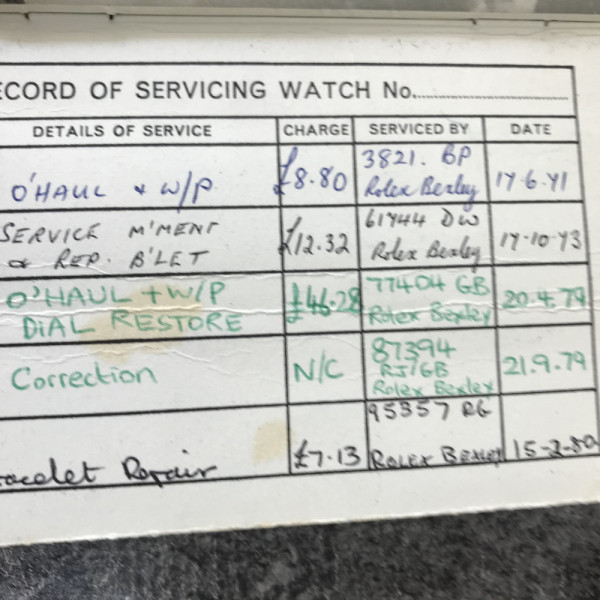 ECORD OF SERVICING WATCH No.
DETAILS OF SERVICE CHARGE SERVICED BY DATE
O'HAUL + W/P. £8.80 3821. BP Rolex Bexley 17.6.71
SERVICE M'MENT & REP. B'LET £12.32 61744 DW Rolex Bexley 17-10-73
O'HAUL + W/P DIAL RESTORE £46.28 77404 GB Rolex Bexley 20.4.79
Correction N/C 87394 RJ/GB Rolex Bexley 21.9.79
acelet Repair £7.13 95357 RG ROLEX BEXLEY 15-2-80